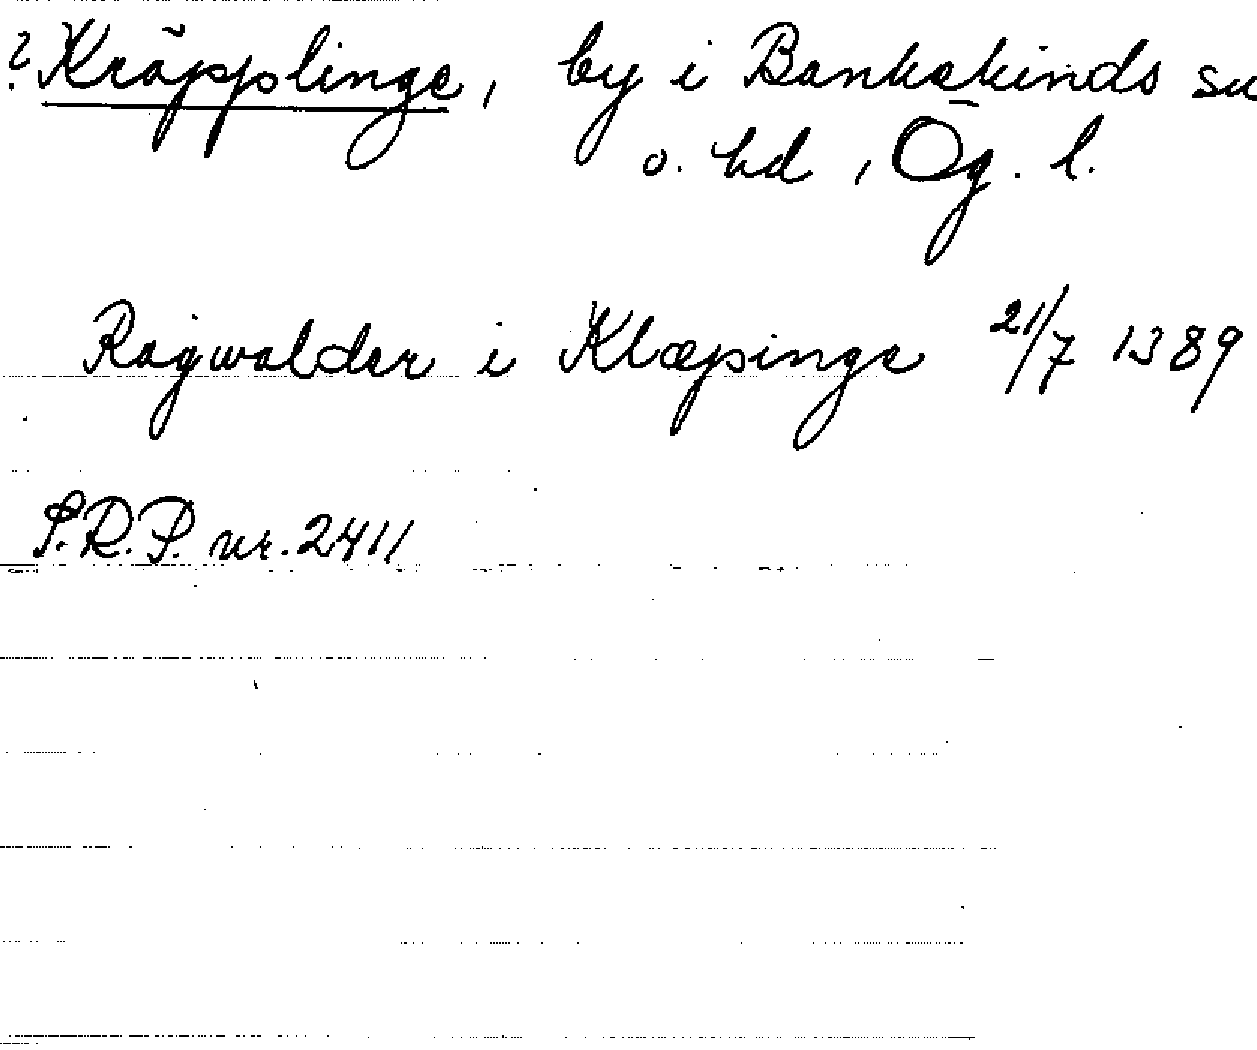 ? Kräpplinge, by i Bankekinds su
o. hd, Ög. l.
Ragwalder i Klæpinge 21/7 1389
S.R.P. nr. 2411